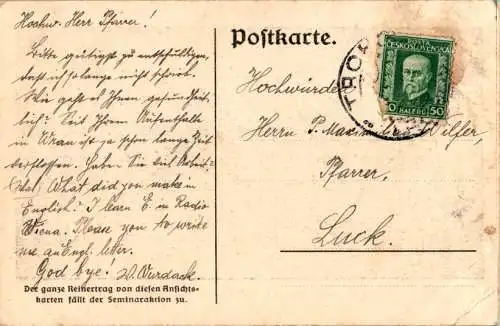 Hochw. Herr Pfarrer!
Bitte gütigst zu entschuldigen,
dass ich so lange nicht schrieb.
Wie geht es Ihnen gesundheit-
lich? Seit Ihrem Aufenthalte
in ist ja schon lange Zeit
verflossen. Haben Sie viel Arbeit?
What did you make in
English? I learn E. in Radio
Wiena. Please you to write
me an Engl. letter.
God bye! W. Wurdack.
Der ganze Reinertrag von diesen Ansichts-
karten fällt der Seminaraktion zu.
Postkarte.
POŠTA
ČESKOSLOVENSKÁ
50 HALÉŘŮ 50
TROP
Hochwürden
Herrn P. Wilfer,
Pfarrer,
Luck.